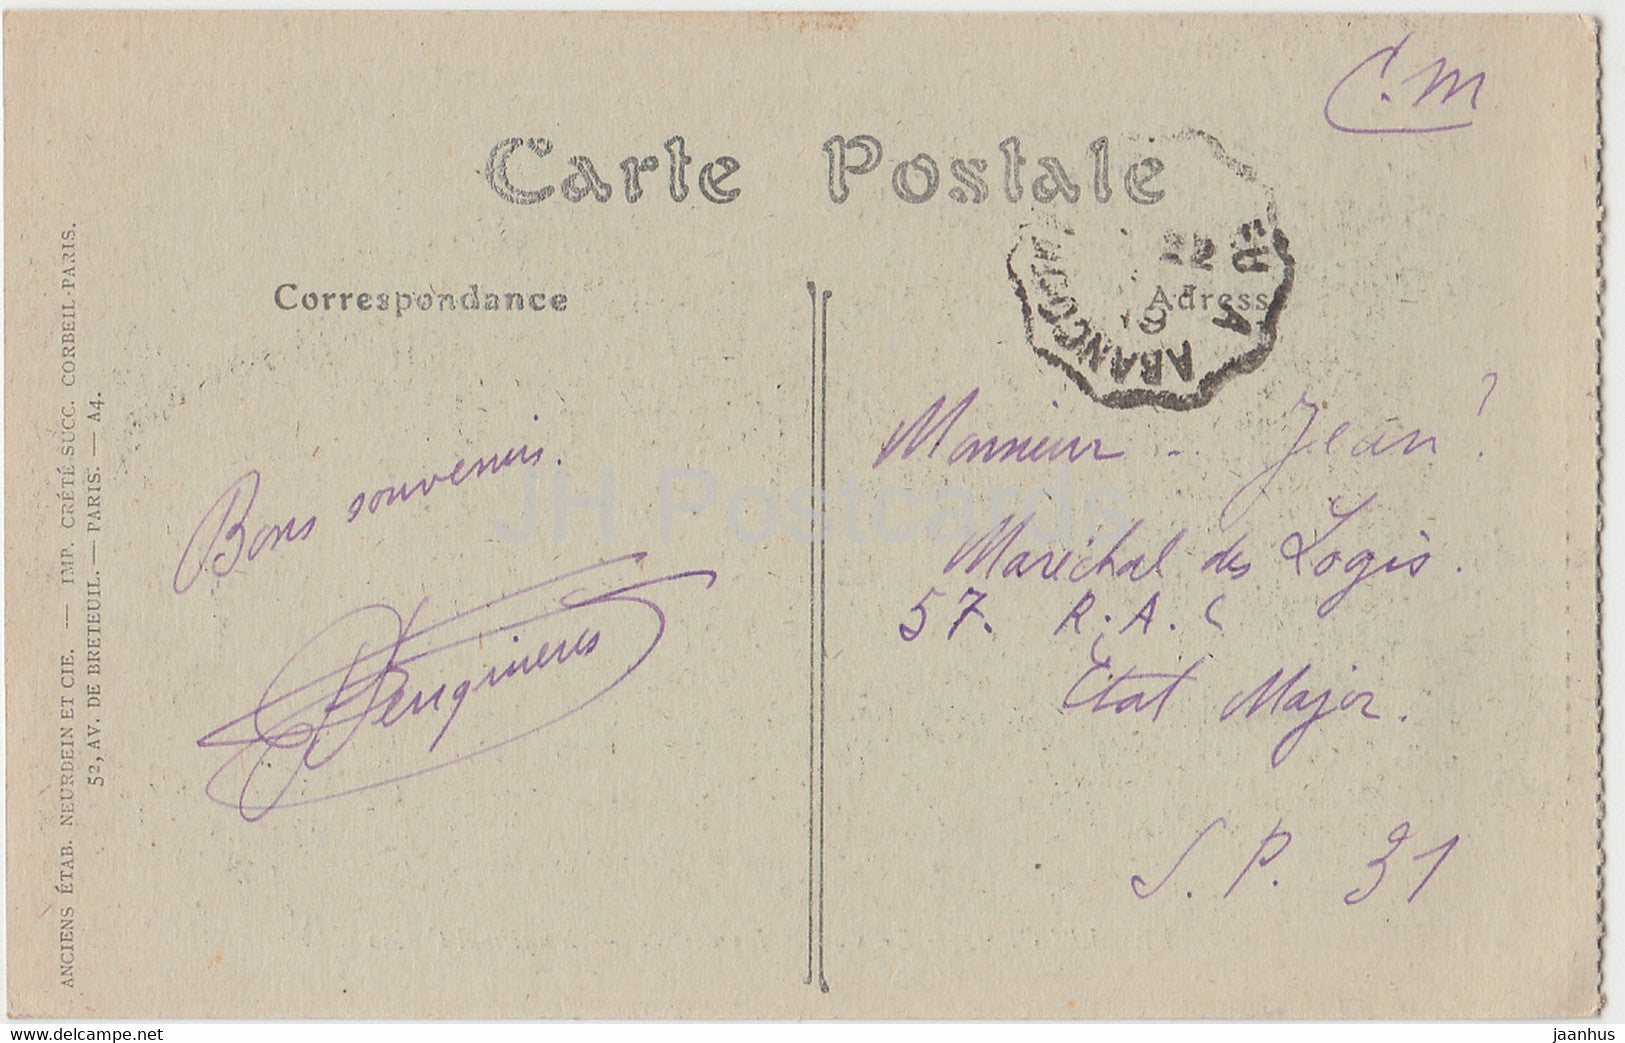 C.M
Carte Postale
Correspondance
Adresse
22
19
ABANCOU
A
Bons souvenirs.
Monsieur - Jean
Maréchal des Logis.
57. R.A.C
Etat Major.
S.P. 31
ANCIENS ÉTAB. NEURDEIN ET CIE. — IMP. CRÉTÉ SUCC. CORBEIL-PARIS.
52, AV. DE BRETEUIL. — PARIS. — A4.
JH Postcards
www.delcampe.net
jaanhus